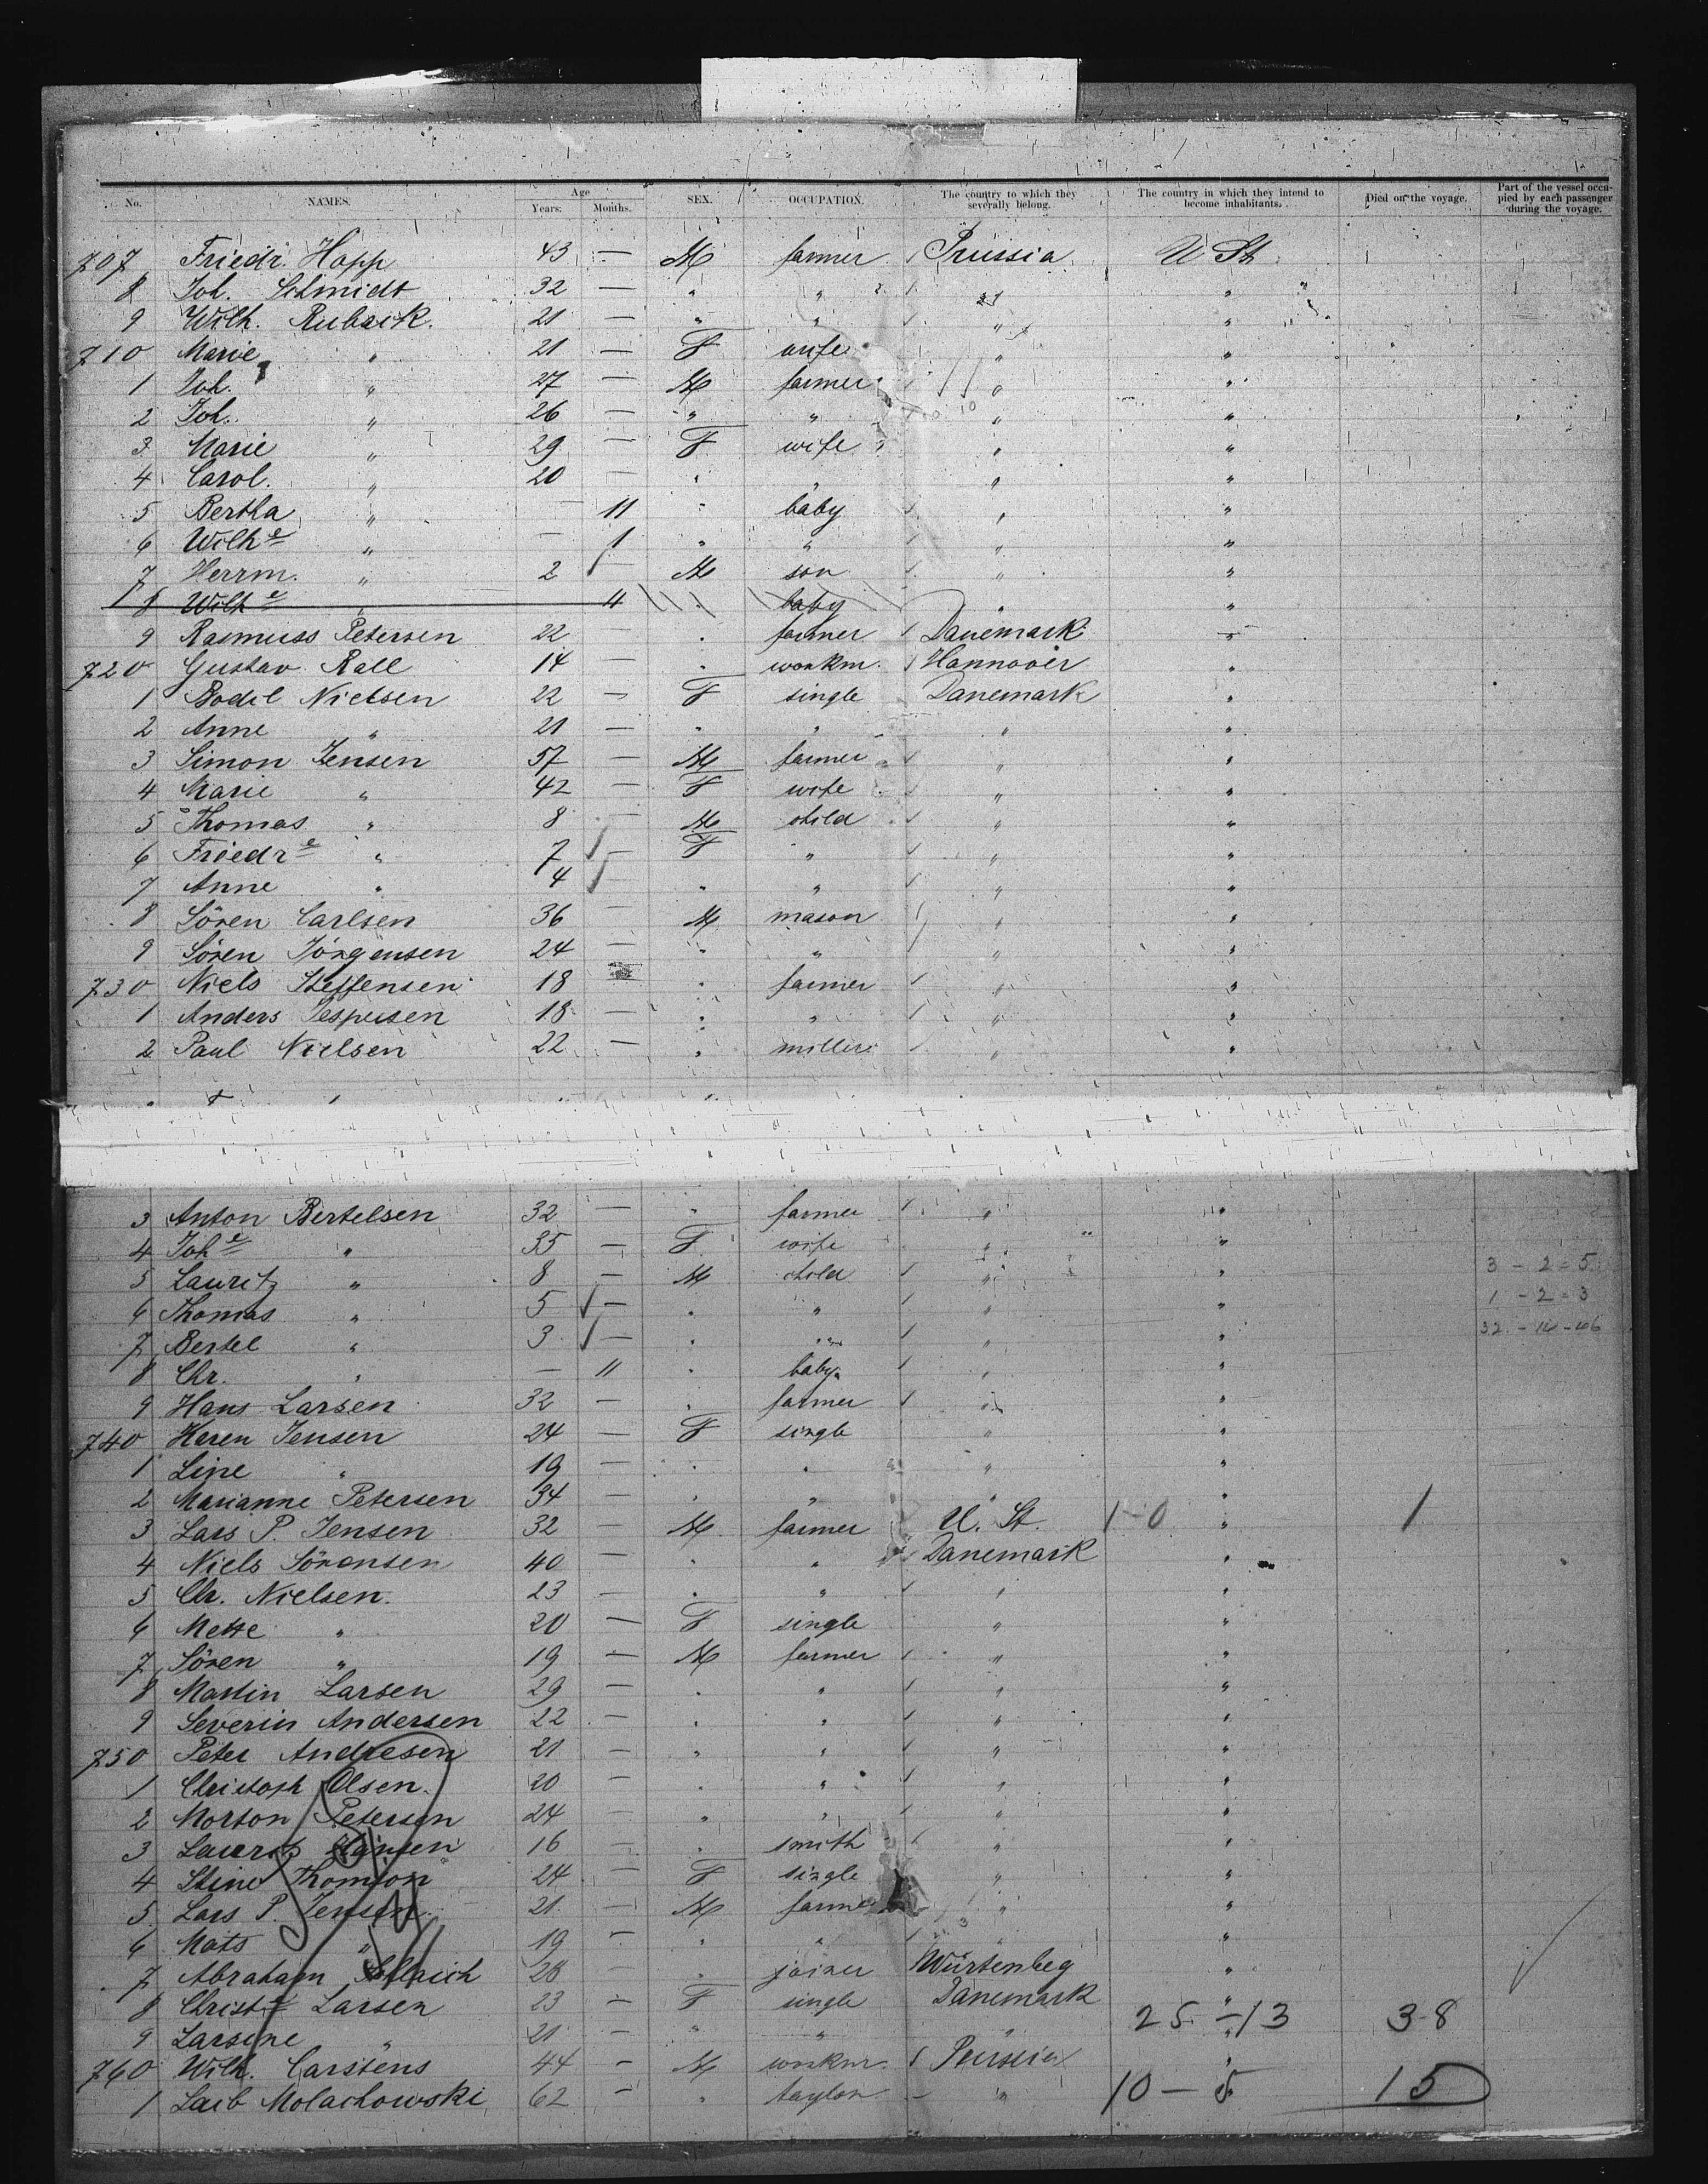 No. NAMES. Age Years. Months. SEX. OCCUPATION. The country to which they severally belong. The country in which they intend to become inhabitants. Died on the voyage. Part of the vessel occupied by each passenger during the voyage.
707 Friedr. Hopp 43 — M farmer Prussia U St
8 Joh. Schmidt 32 — " " " "
9 Wilh. Ruback. 21 — " " " "
710 Marie " 21 — F wife " "
1 Joh. " 27 — M farmer " "
2 Joh. " 26 — " " " "
3 Marie " 29 — F wife " "
4 Carol. " 20 — " " " "
5 Bertha " — 11 " baby " "
6 Wilhe " — 1 " " " "
7 Herrm. " 2 — M son " "
8 Wilhe " 4 " baby " "
9 Rasmuss Petersen 22 — " farmer Danemark "
720 Gustav Rall 14 — " workm. Hannover "
1 Bodil Nielsen 22 — F single Danemark "
2 Anne " 21 — " " " "
3 Simon Jensen 57 — M farmer " "
4 Marie " 42 — F wife " "
5 Thomas " 8 — M child " "
6 Friedre " 7 — F " " "
7 Anne " 4 " " " "
8 Sören Carlsen 36 — M mason " "
9 Sören Jörgensen 24 — " " " "
730 Niels Steffensen 18 " farmer " "
1 Anders Jespersen 18 — " " " "
2 Paul Nielsen 22 — " miller " "
3 Anton Bertelsen 32 — " farmer " "
4 Johe " 35 — F wife " "
5 Lauritz " 8 — M child " " 3 - 2 = 5
6 Thomas " 5 — " " " " 1 - 2 = 3
7 Bertel " 3 — " " " " 32 - 14 - 46
8 Chr. " — 11 " baby " "
9 Hans Larsen 32 — " farmer " "
740 Karen Jensen 24 — F single " "
1 Line " 19 — " " " "
2 Marianne Petersen 34 — " " " "
3 Lars P. Jensen 32 — M farmer U. St. 1-0 " 1
4 Niels Sörensen 40 — " " Danemark "
5 Chr. Nielsen. 23 — " " " "
6 Mette " 20 — F single " "
7 Sören " 19 — M farmer " "
8 Martin Larsen 29 — " " " "
9 Severin Andersen 22 — " " " "
750 Peter Andresen 21 — " " " "
1 Christoph Olsen. 20 — " " " "
2 Morton Petersen 24 — " " " "
3 Lauritz Hansen 16 — " smith " "
4 Stine Thomson 24 — F single " "
5 Lars P. Jensen 21 — M farmer " "
6 Mats " 19 — " " " "
7 Abraham 28 " joiner Würtenbeg "
8 Christe Larsen 23 — F single Danemark "
9 Larsine " 21 — " " " " 25 - 13 38
760 Wilh. Carstens 44 — M workm. Prussia "
1 Laib Molachowski 62 — " taylor " " 10 - 5 15